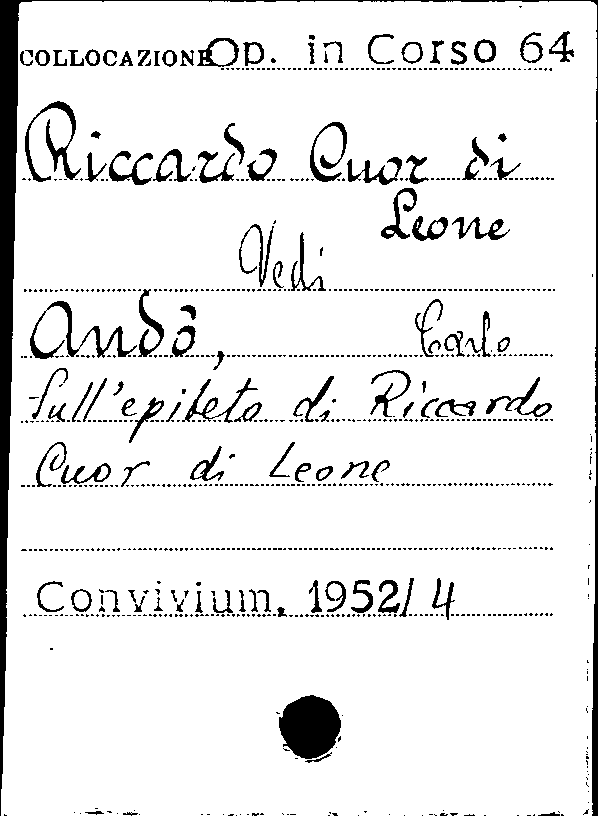 COLLOCAZIONE Op. in Corso 64
Riccardo Cuor di
Leone
Vedi
Andò, Carlo
Sull'epiteto di Riccardo
Cuor di Leone
Convivium. 1952/4